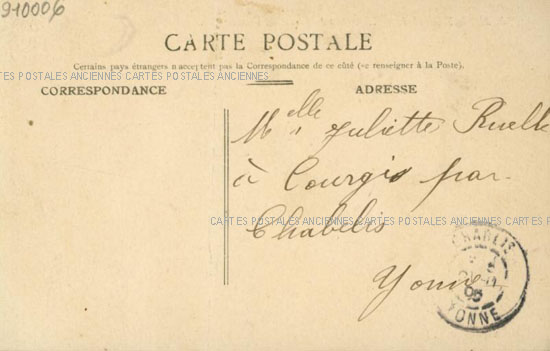 910006
CARTE POSTALE
Certains pays étrangers n'acceptent pas la Correspondance de ce côté (se renseigner à la Poste).
CARTES POSTALES ANCIENNES CARTES POSTALES ANCIENNES CARTES POSTALES ANCIENNES CARTES POSTALES ANCIENNES
CORRESPONDANCE
ADRESSE
Melle Juliette Ruelle
à Courgis par
CARTES POSTALES ANCIENNES CARTES POSTALES ANCIENNES CARTES POSTALES
Chabelis
Yonne
CHABLIS
05
YONNE